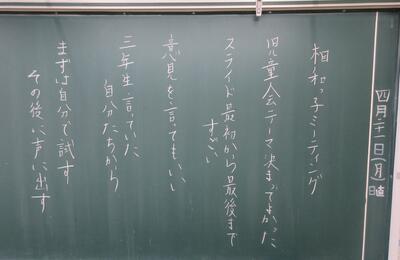 四月二十一日(月)
日直
相和っ子ミーティング
児童会テーマ決まってよかった
スライド最初から最後まで
すごい
意見を言ってもいい
三年生言っていた
自分たちから
まずは自分で試す
その後に声に出す